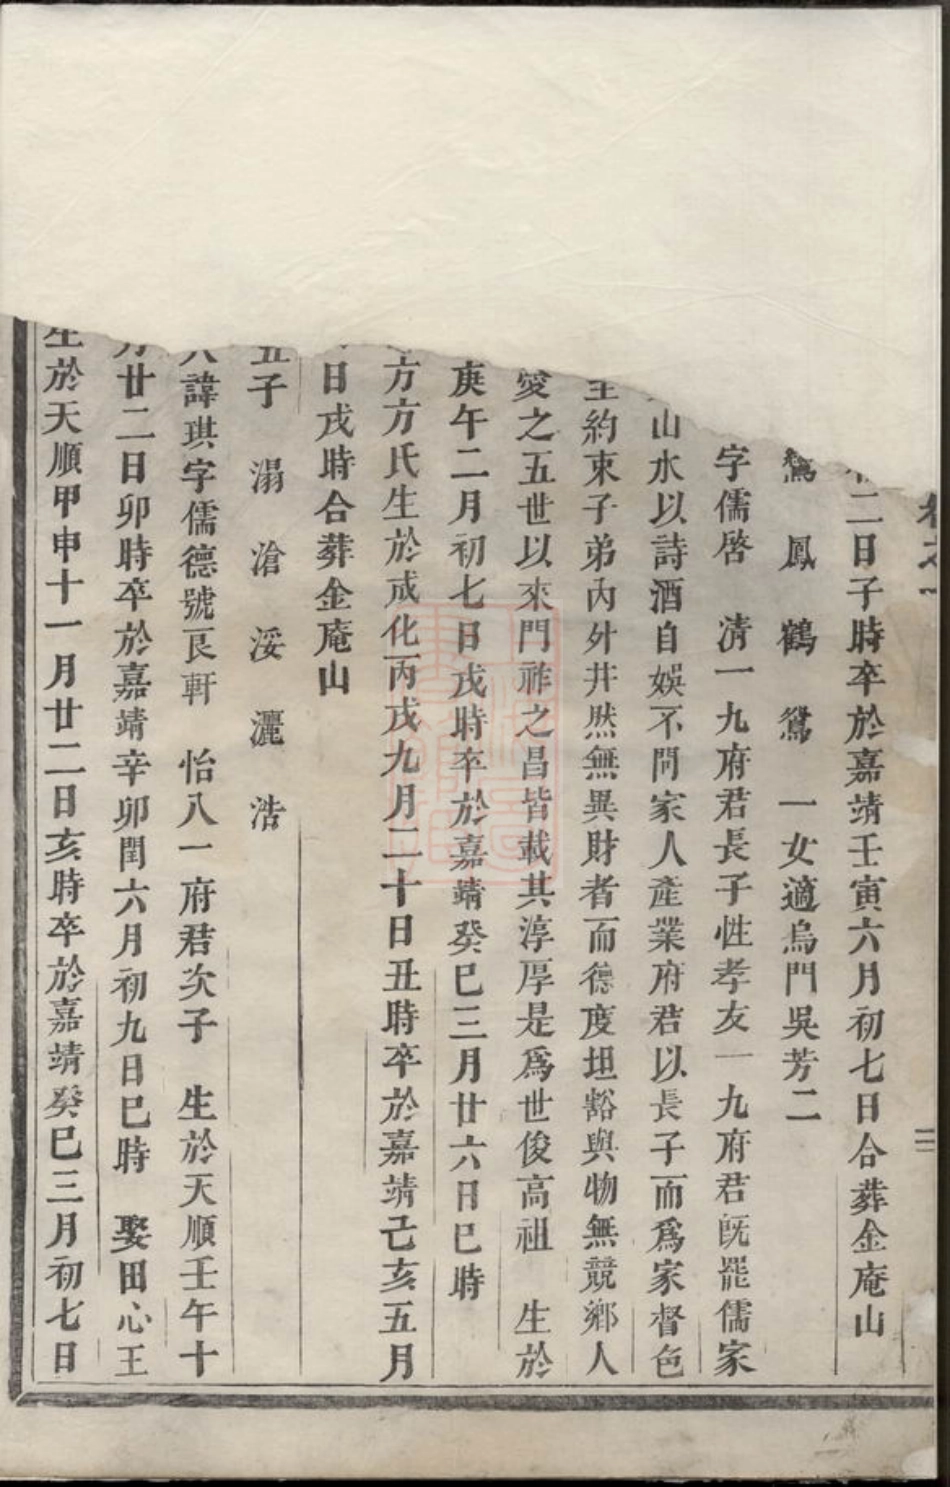 卷之一
二日子時卒於嘉靖壬寅六月初七日合葬金庵山
鳳 鶴 鴛 一女適烏門吳芳二
字儒啓 清一九府君長子性孝友一九府君旣罷儒家
山水以詩酒自娛不問家人產業府君以長子而爲家督色
至約束子弟內外井然無異財者而德度坦豁與物無競鄉人
愛之五世以來門祚之昌皆載其淳厚是爲世俊高祖 生於
庚午二月初七日戌時卒於嘉靖癸巳三月廿六日巳時
方方氏生於成化丙戌九月二十日丑時卒於嘉靖己亥五月
日戌時合葬金庵山
五子 溺 滄 浽 灑 浩
八諱琪字儒德號艮軒 怡八一府君次子 生於天順壬午十
月廿二日卯時卒於嘉靖辛卯閏六月初九日巳時 娶田心王
生於天順甲申十一月廿二日亥時卒於嘉靖癸巳三月初七日
二